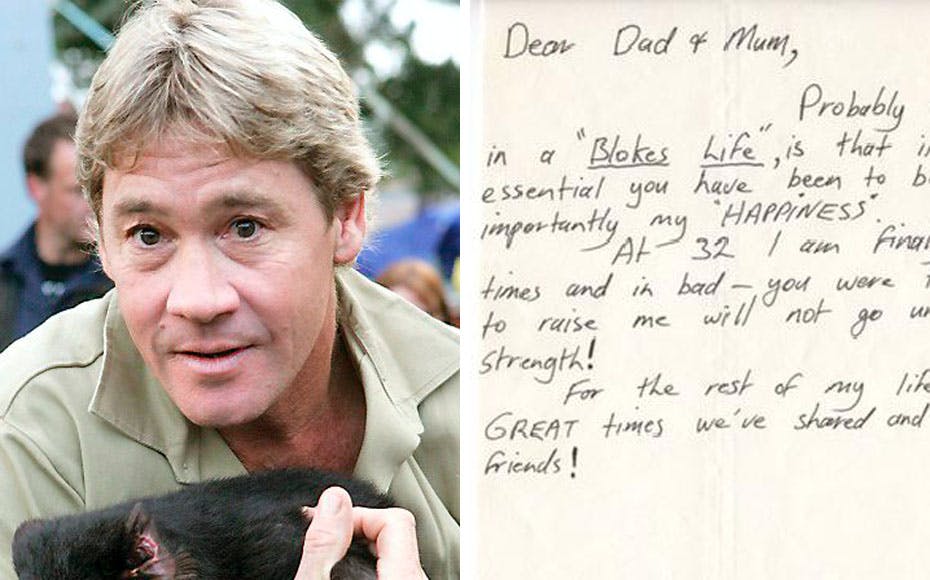 Dear Dad & Mum,
Probably
in a "Blokes Life", is that
essential you have been to
importantly my "HAPPINESS".
At 32 I am
times and in bad – you were
to raise me will not go
strength!
For the rest of my
GREAT times we've shared and
friends!